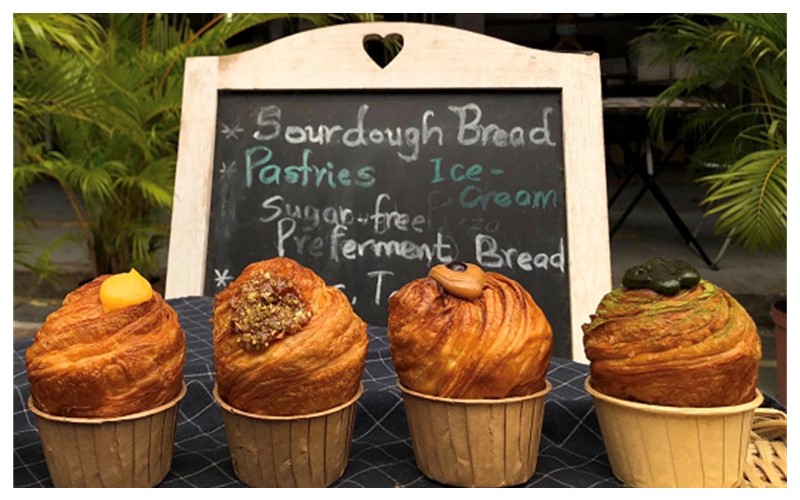 * Sourdough Bread
* Pastries Ice-
Cream
Sugar-free
Preferment Bread
*